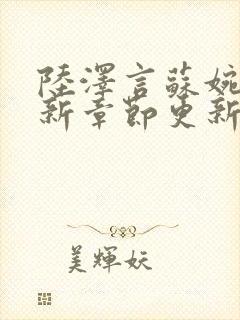 陸澤言蘇婉
新章節更新
美輝妖